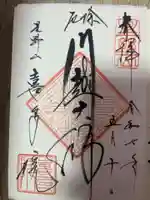 奉拝
令和七年
五月十
厄除
川越大師
星野山
喜多院